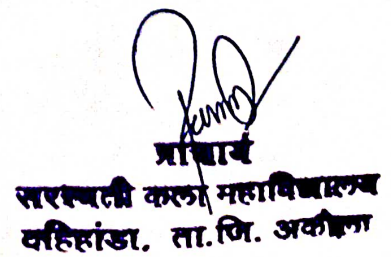 प्राचार्य
सरस्वती कला महाविद्यालय
दहिहांडा. ता.जि. अकोला